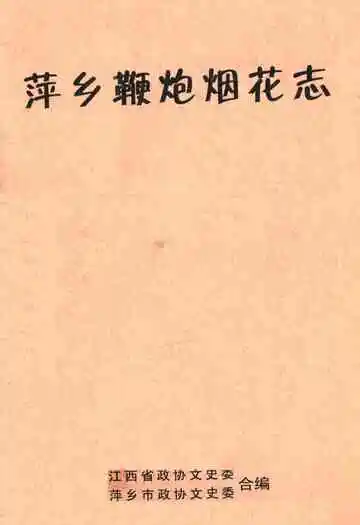 萍乡鞭炮烟花志
江西省政协文史委
萍乡市政协文史委
合编